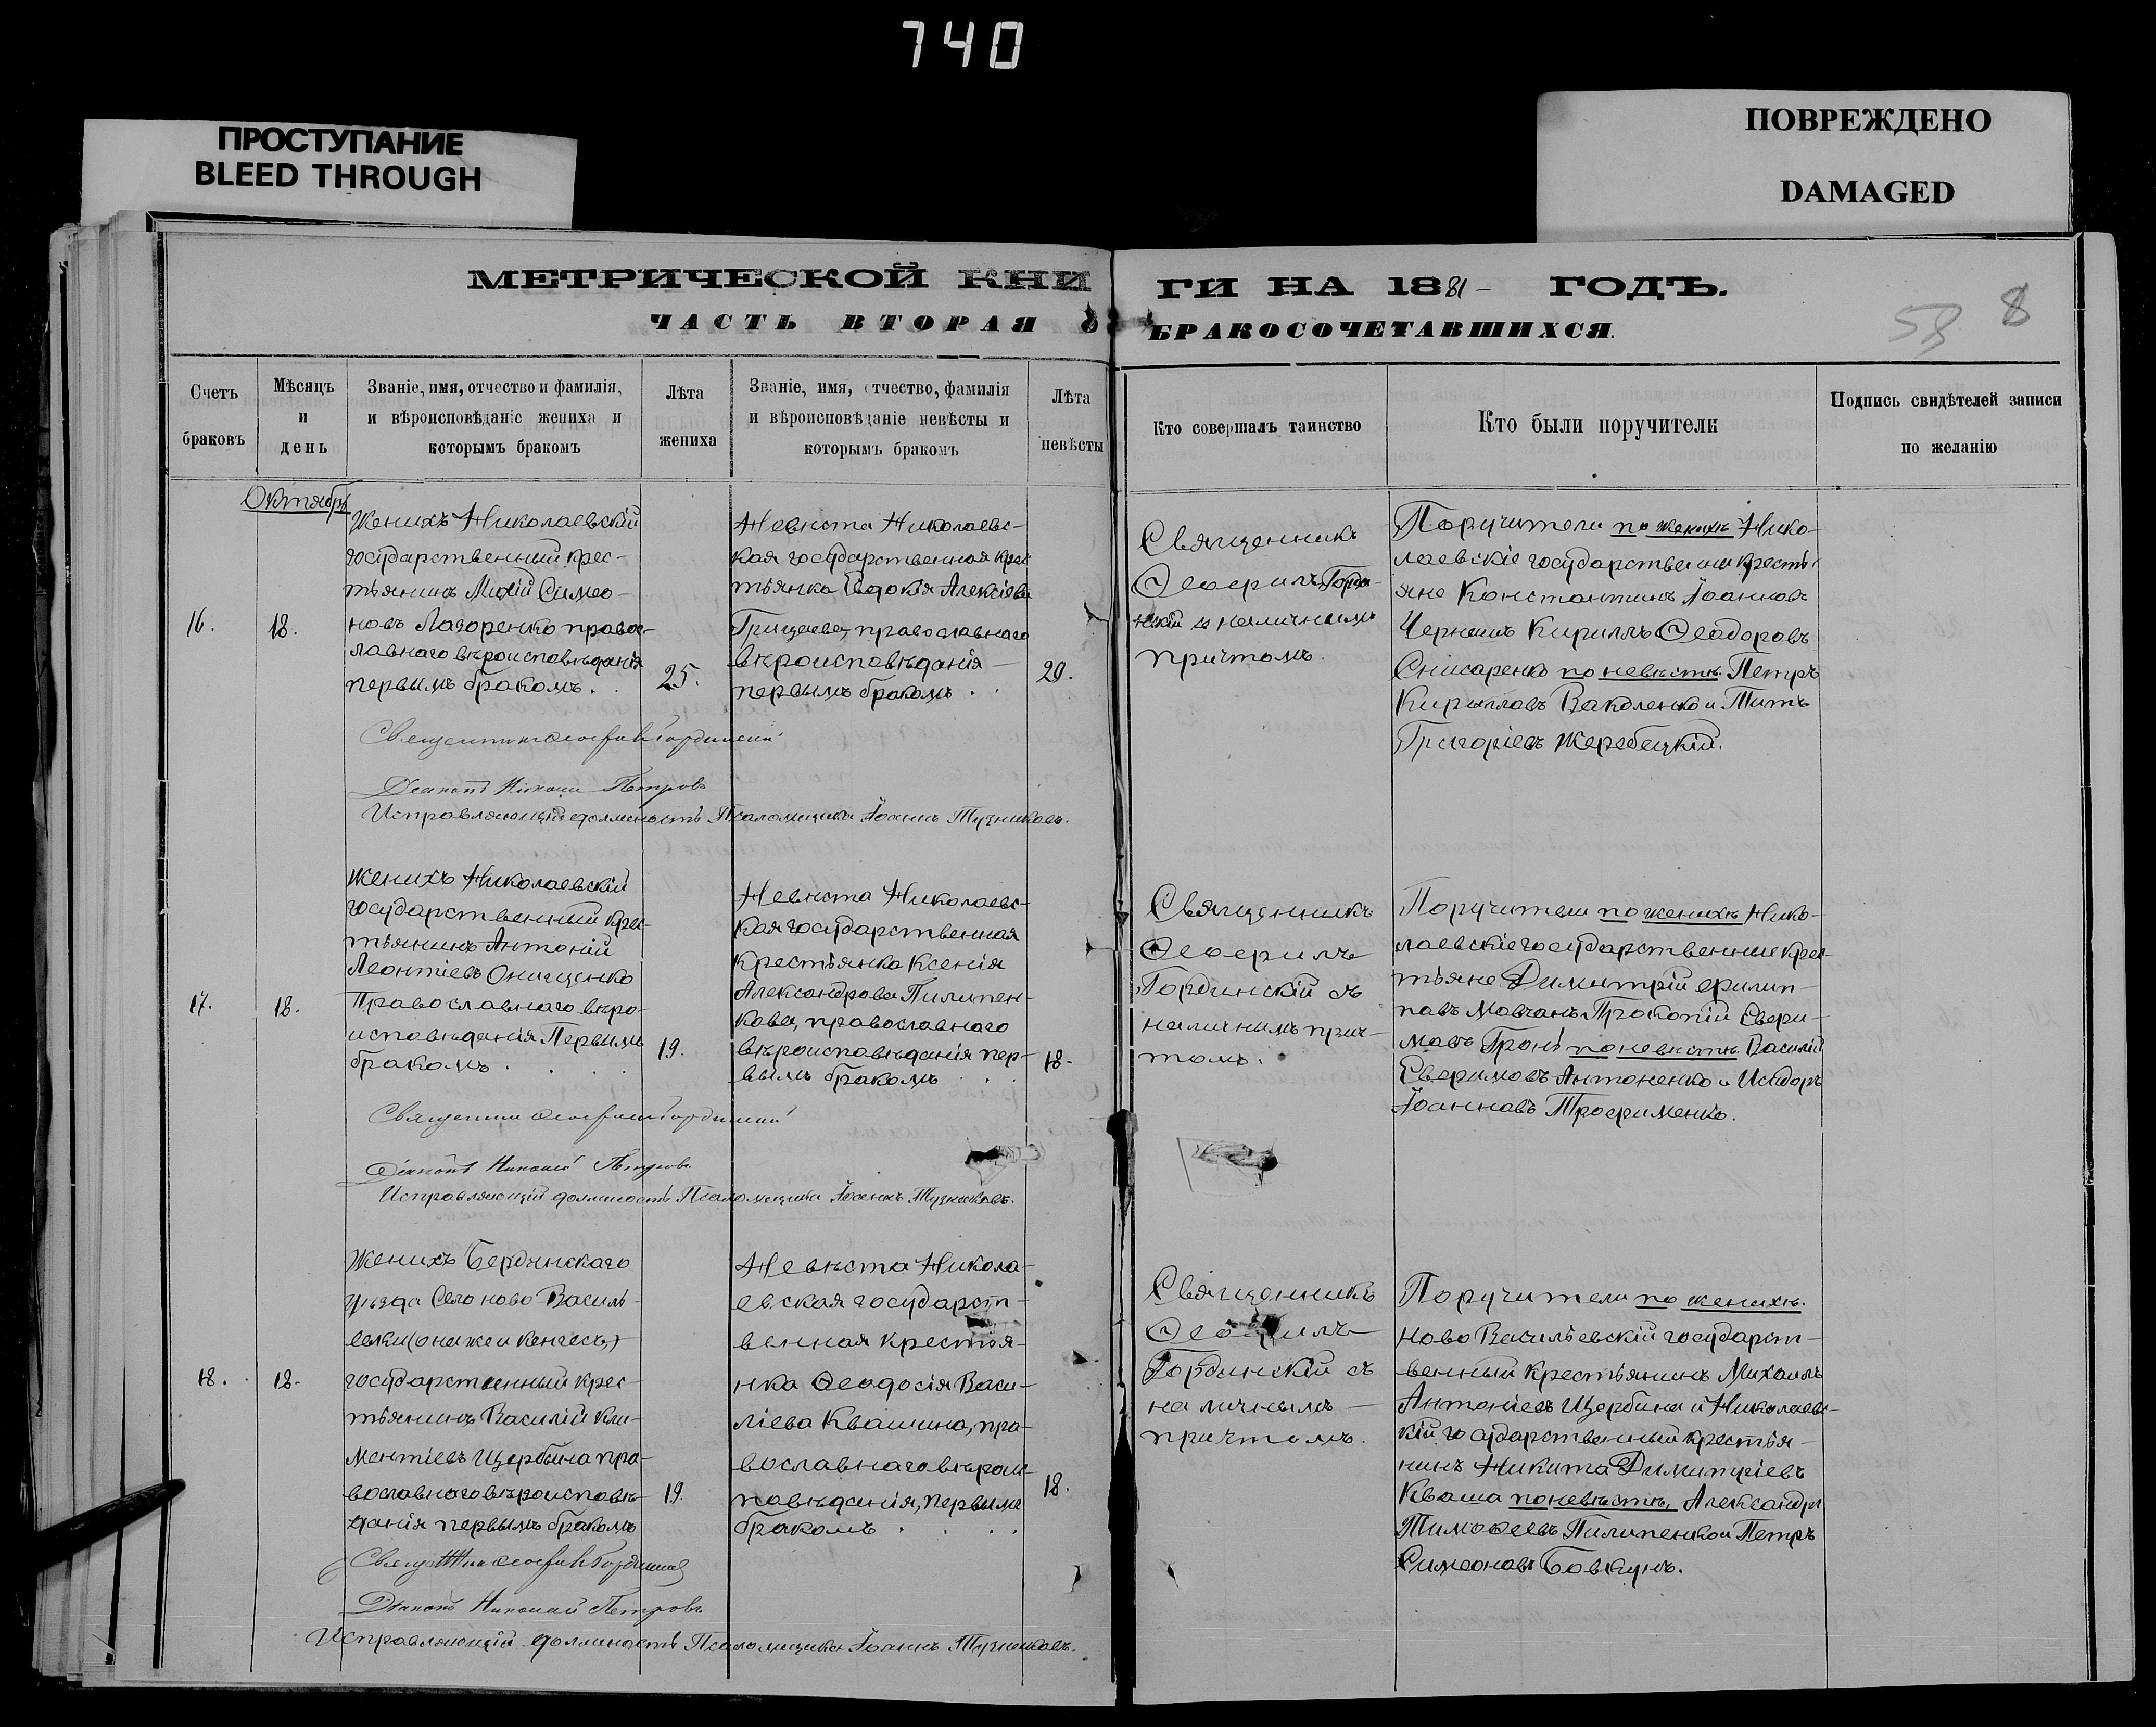 740
ПРОСТУПАНИЕ
BLEED THROUGH
ПОВРЕЖДЕНО
DAMAGED
МЕТРИЧЕСКОЙ КНИ
ГИ НА 1881 - ГОДЪ.
ЧАСТЬ ВТОРАЯ О
БРАКОСОЧЕТАВШИХСЯ.
58 8
Счетъ
браковъ
Мѣсяцъ
и
день
Званіе, имя, отчество и фамилія,
и вѣроисповѣданіе жениха и
которымъ бракомъ
Лѣта
жениха
Званіе, имя, отчество, фамилія
и вѣроисповѣданіе невѣсты и
которымъ бракомъ
Лѣта
невѣсты
Кто совершалъ таинство
Кто были поручители
Подпись свидѣтелей записи
по желанію
Октябрь
16.
18.
Женихъ Николаевскій
государственный крес-
тьянинъ Симео-
новъ Лазоренко правос-
лавнаго вѣроисповѣданія
первымъ бракомъ.
25.
Невѣста Николаевс-
кая государственная крес
тьянка Евдокія Алексіева
Грищаева, православнаго
вѣроисповѣданія
первымъ бракомъ
20.
Священникъ
Ѳеофилъ Горди-
нскій и наличнымъ
причтомъ.
Поручители по женихѣ Нико-
лаевскіе государственныи кресть-
яне Константинъ Іоанновъ
Кириллъ Ѳеодоровъ
Снисаренко по невѣстѣ. Петръ
Кирилловъ Ваколенко и Титъ
Григоріевъ Жеребецкій.
Священникъ Ѳеофилъ Гординскій
Діаконъ Николай Петровъ
Исправляющій должность Псаломщика Іоаннъ Тузниковъ.
17.
18.
Женихъ Николаевскій
государственный крес-
тьянинъ Антоній
Леонтіевъ Онищенко
Православнаго вѣро-
исповѣданія Первымъ
бракомъ
19.
Невѣста Николаевс-
кая государственная
крестьянка Ксенія
Александрова Пилипен-
кова, православнаго
вѣроисповѣданія пер-
вымъ бракомъ
18.
Священникъ
Ѳеофилъ
Гординскій съ
наличнымъ прич-
томъ.
Поручители по женихѣ Нико-
лаевскіе государственные крес-
тьяне Димитрій Филип-
повъ Мовчанъ Прокопій Евфи-
мовъ по невѣстѣ Василій
Евфимовъ Антоненко и Исидоръ
Іоанновъ Трофименко.
Священникъ Ѳеофилъ Гординскій
Діаконъ Николай Петровъ
Исправляющій должность Псаломщика Іоаннъ Тузниковъ.
18.
18.
Женихъ Бердянскаго
уѣзда Село ново Василь-
евки (она же и Кенгесъ)
государственный крес-
тьянинъ Василій Кли-
ментіевъ Щербина пра-
вославнаго вѣроисповѣ-
данія первымъ бракомъ
19.
Невѣста Никола-
евская государст-
венная крестья-
нка Ѳеодосія Васи-
ліева Квашина, пра-
вославнаго вѣроис-
повѣданія, первымъ
бракомъ
18.
Священникъ
Ѳеофилъ
Гординскій съ
наличнымъ
причтомъ.
Поручители по женихѣ.
ново Васильевскій государст-
венный крестьянинъ Михаилъ
Антоніевъ Щербина и Николаевс-
кій государственный крестья-
нинъ Никита Димитріевъ
Кваша по невѣстѣ, Александръ
Тимоѳеевъ Пилипенко и Петръ
Симеоновъ Бовкунъ.
Священникъ Ѳеофилъ Гординскій
Діаконъ Николай Петровъ
Исправляющій должность Псаломщика Іоаннъ Тузниковъ.